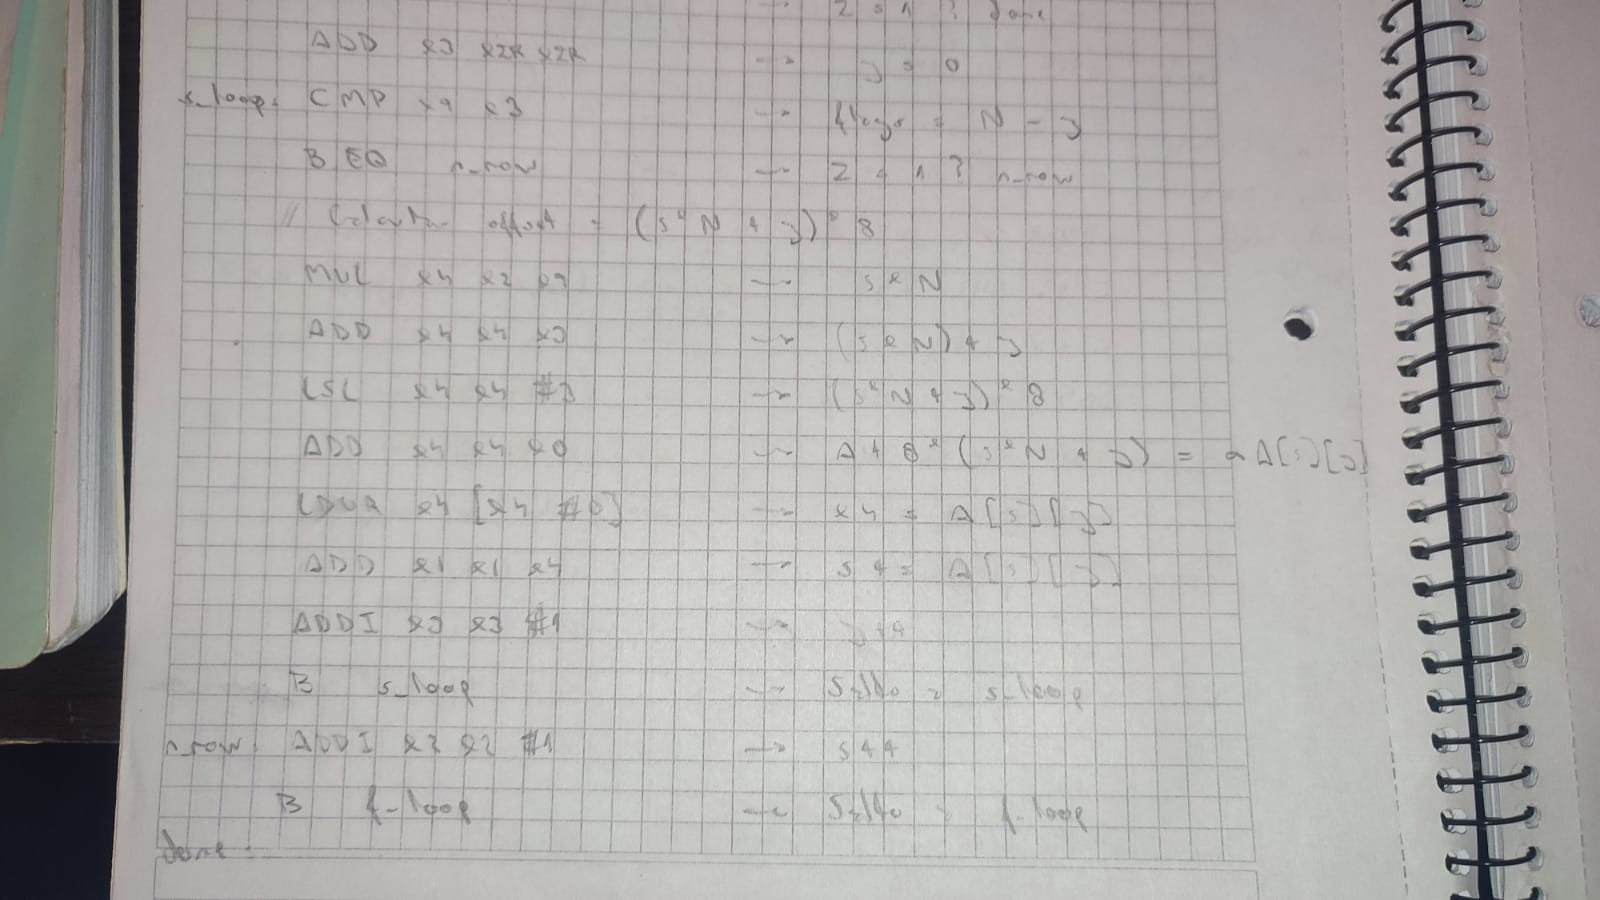 → Z = 1 ? done
ADD x3 xZR xZR → j = 0
s_loop: CMP x9 x3 → flags = N - j
BEQ n_row → Z = 1 ? n_row
// offset = (i * N + j) * 8
MUL x4 x2 x9 → i * N
ADD x4 x4 x3 → (i * N) + j
LSL x4 x4 #3 → (i * N + j) * 8
ADD x4 x4 x0 → A + 8 * (i * N + j) = &A[i][j]
LDUR x4 [x4 #0] → x4 = A[i][j]
ADD x1 x1 x4 → s += A[i][j]
ADDI x3 x3 #1 → j++
B s_loop → Salto a s_loop
n_row: ADDI x2 x2 #1 → i++
B f_loop → Salto a f_loop
done: